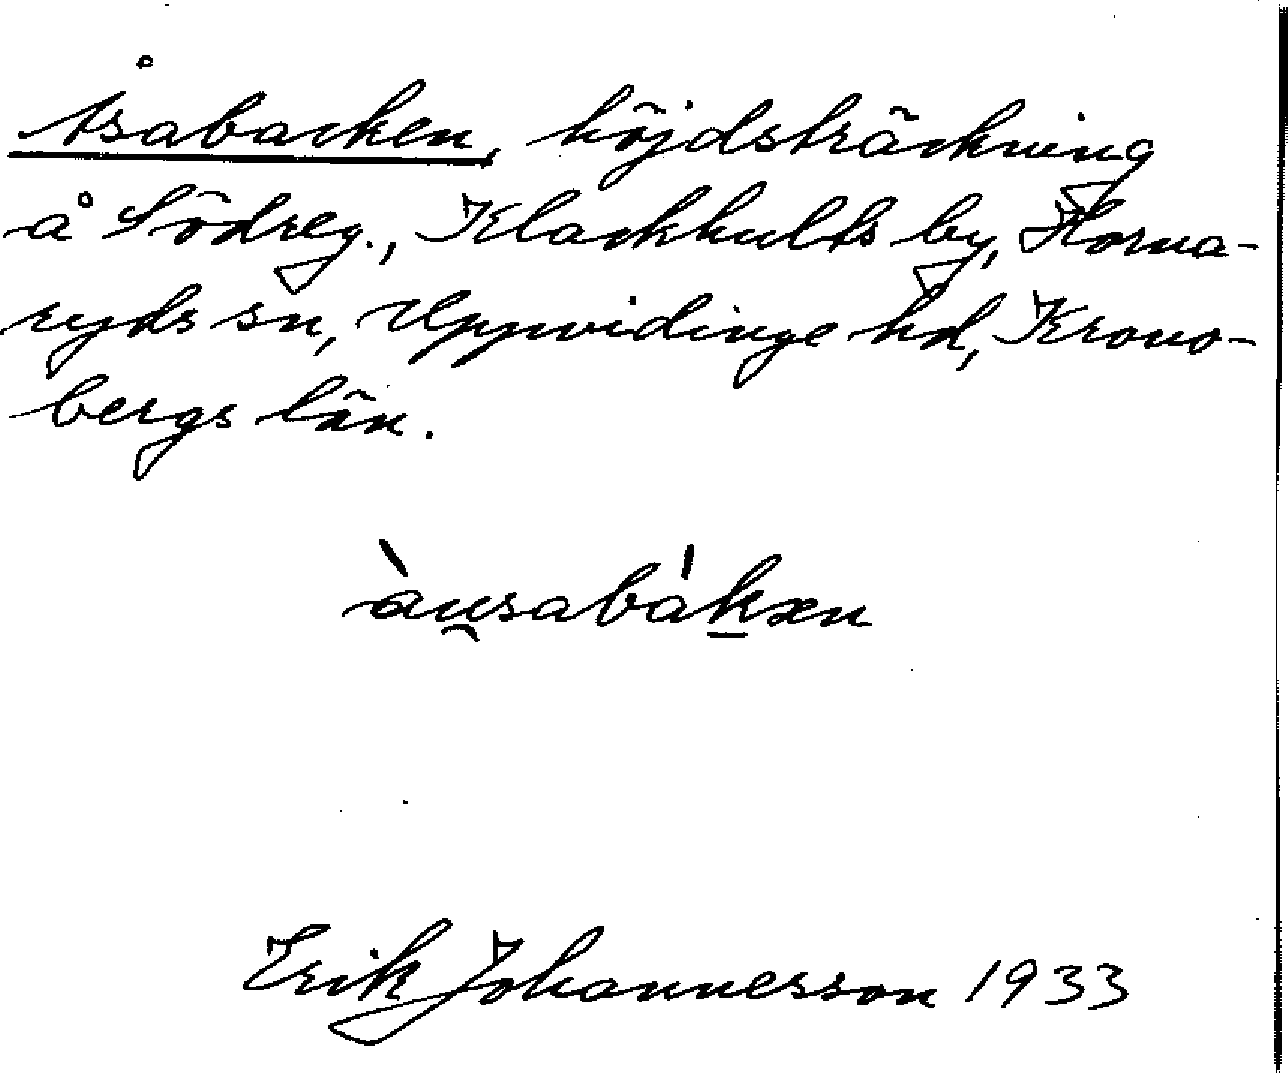 Åsabacken, höjdsträckning
å Södreg., Klackhults by, Horna-
ryds sn, Uppvidinge hd, Krono-
bergs län.
àu̯sabák̲xn
Erik Johannesson 1933